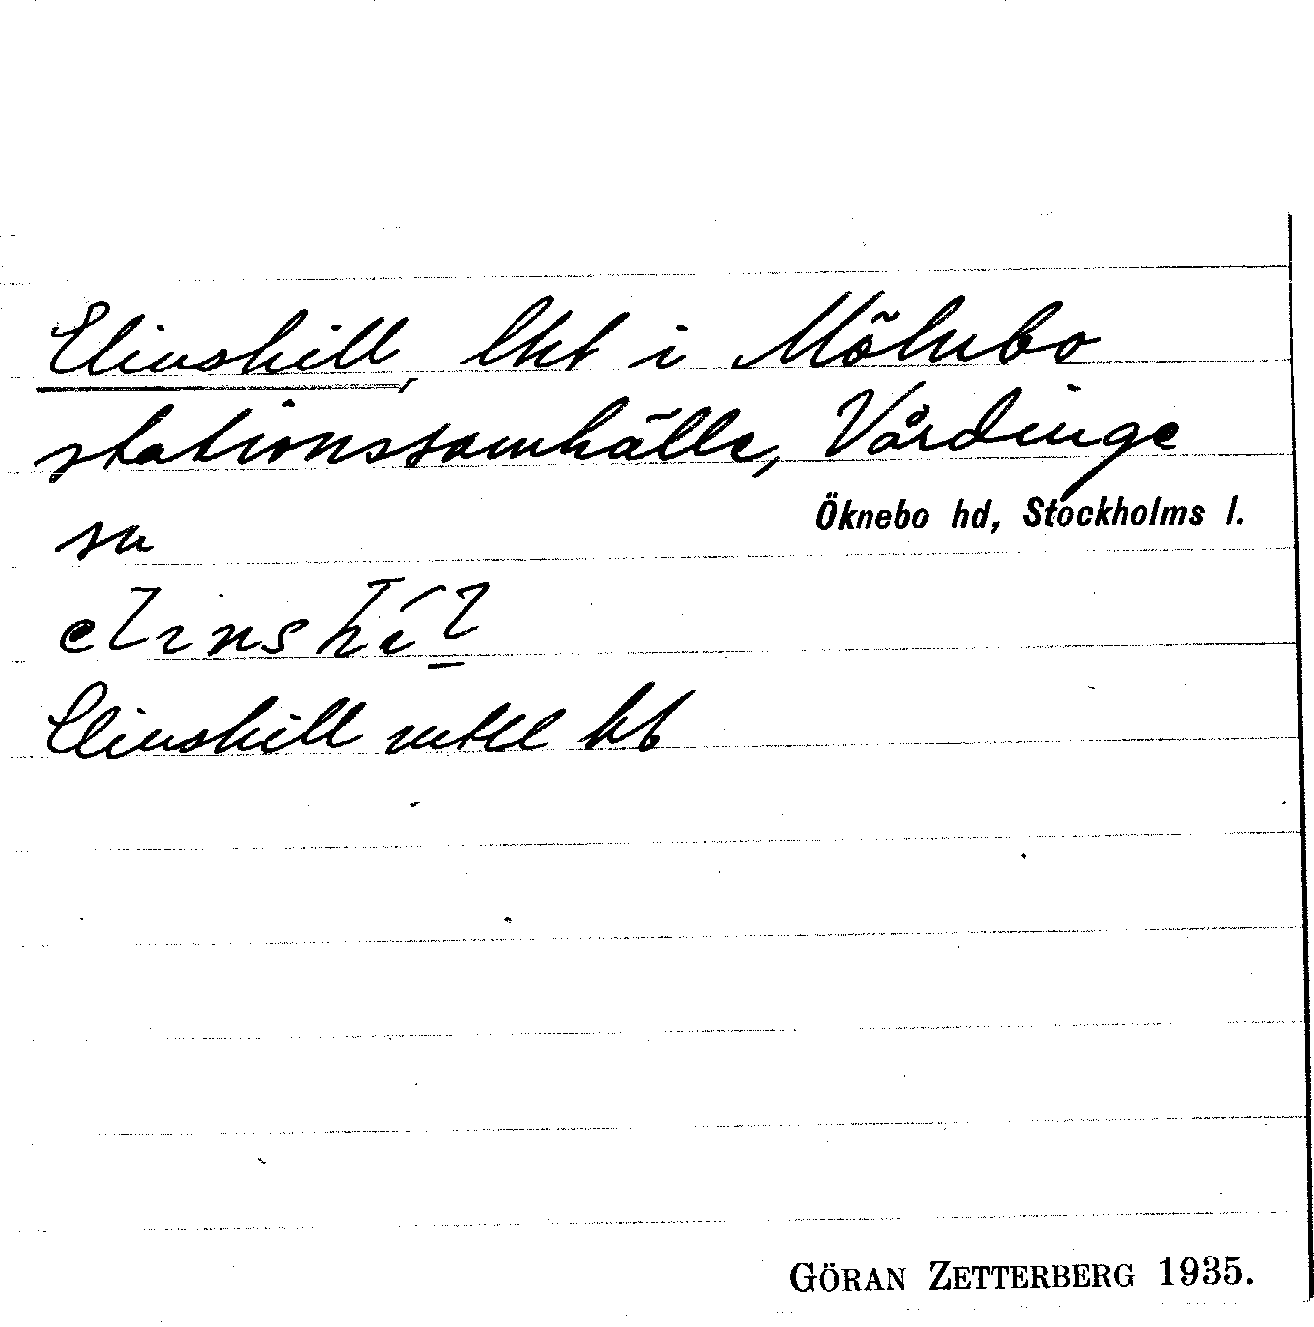 Elinskill, lht i Mölnbo
stationssamhälle, Vårdinge
sn
Öknebo hd, Stockholms l.
Elinskill mtll kb
GÖRAN ZETTERBERG 1935.